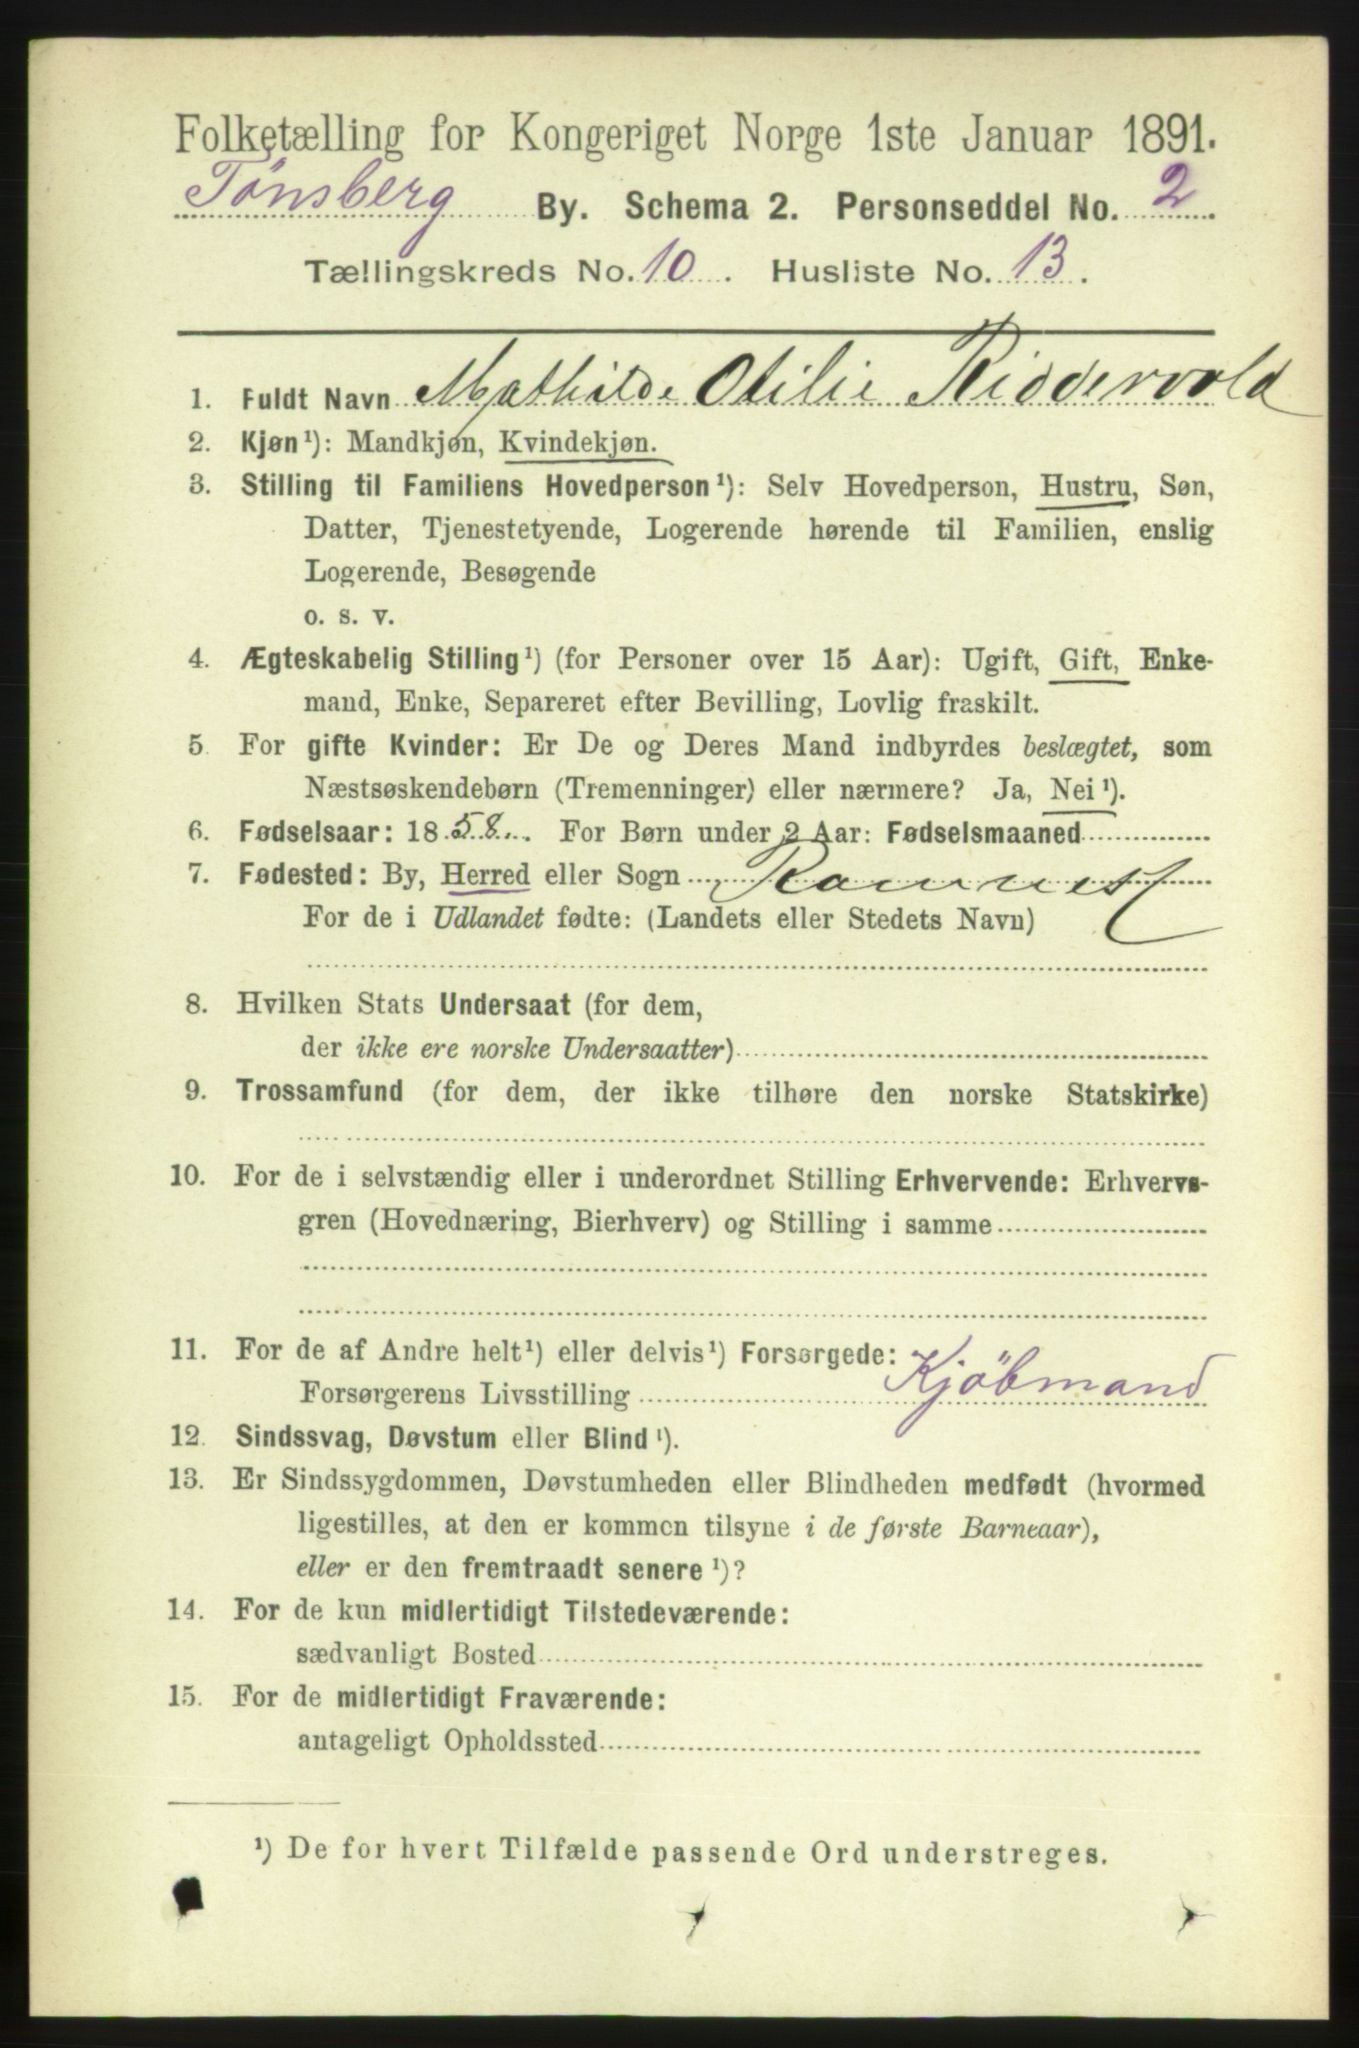 Folketælling for Kongeriget Norge 1ste Januar 1891.
Tønsberg By. Schema 2. Personseddel No. 2.
Tællingskreds No. 10. Husliste No. 13.
1. Fuldt Navn Mathilde Otilie Riddervold
2. Kjøn¹): Mandkjøn, Kvindekjøn.
3. Stilling til Familiens Hovedperson¹): Selv Hovedperson, Hustru, Søn,
Datter, Tjenestetyende, Logerende hørende til Familien, enslig
Logerende, Besøgende
o. s. v.
4. Ægteskabelig Stilling¹) (for Personer over 15 Aar): Ugift, Gift, Enke-
mand, Enke, Separeret efter Bevilling, Lovlig fraskilt.
5 For gifte Kvinder: Er De og Deres Mand indbyrdes beslægtet, som
Næstsøskendebørn (Tremenninger) eller nærmere? Ja, Nei¹).
6. Fødselsaar: 1858. For Børn under 2 Aar: Fødselsmaaned
7. Fødested: By, Herred eller Sogn Ramnes
For de i Udlandet fødte: (Landets eller Stedets Navn)
8. Hvilken Stats Undersaat (for dem,
der ikke ere norske Undersaatter)
9. Trossamfund (for dem, der ikke tilhøre den norske Statskirke)
10. For de i selvstændig eller i underordnet Stilling Erhvervende: Erhvervs-
gren (Hovednæring, Bierhverv) og Stilling i samme
11. For de af Andre helt¹) eller delvis¹) Forsørgede:
Forsørgerens Livsstilling Kjøbmand
12. Sindssvag, Døvstum eller Blind¹).
13. Er Sindssygdommen, Døvstumheden eller Blindheden medfødt (hvormed
ligestilles, at den er kommen tilsyne i de første Barneaar),
eller er den fremtraadt senere¹)?
14. For de kun midlertidigt Tilstedeværende:
sædvanligt Bosted
15. For de midlertidigt Fraværende:
antageligt Opholdssted
¹) De for hvert Tilfælde passende Ord understreges.